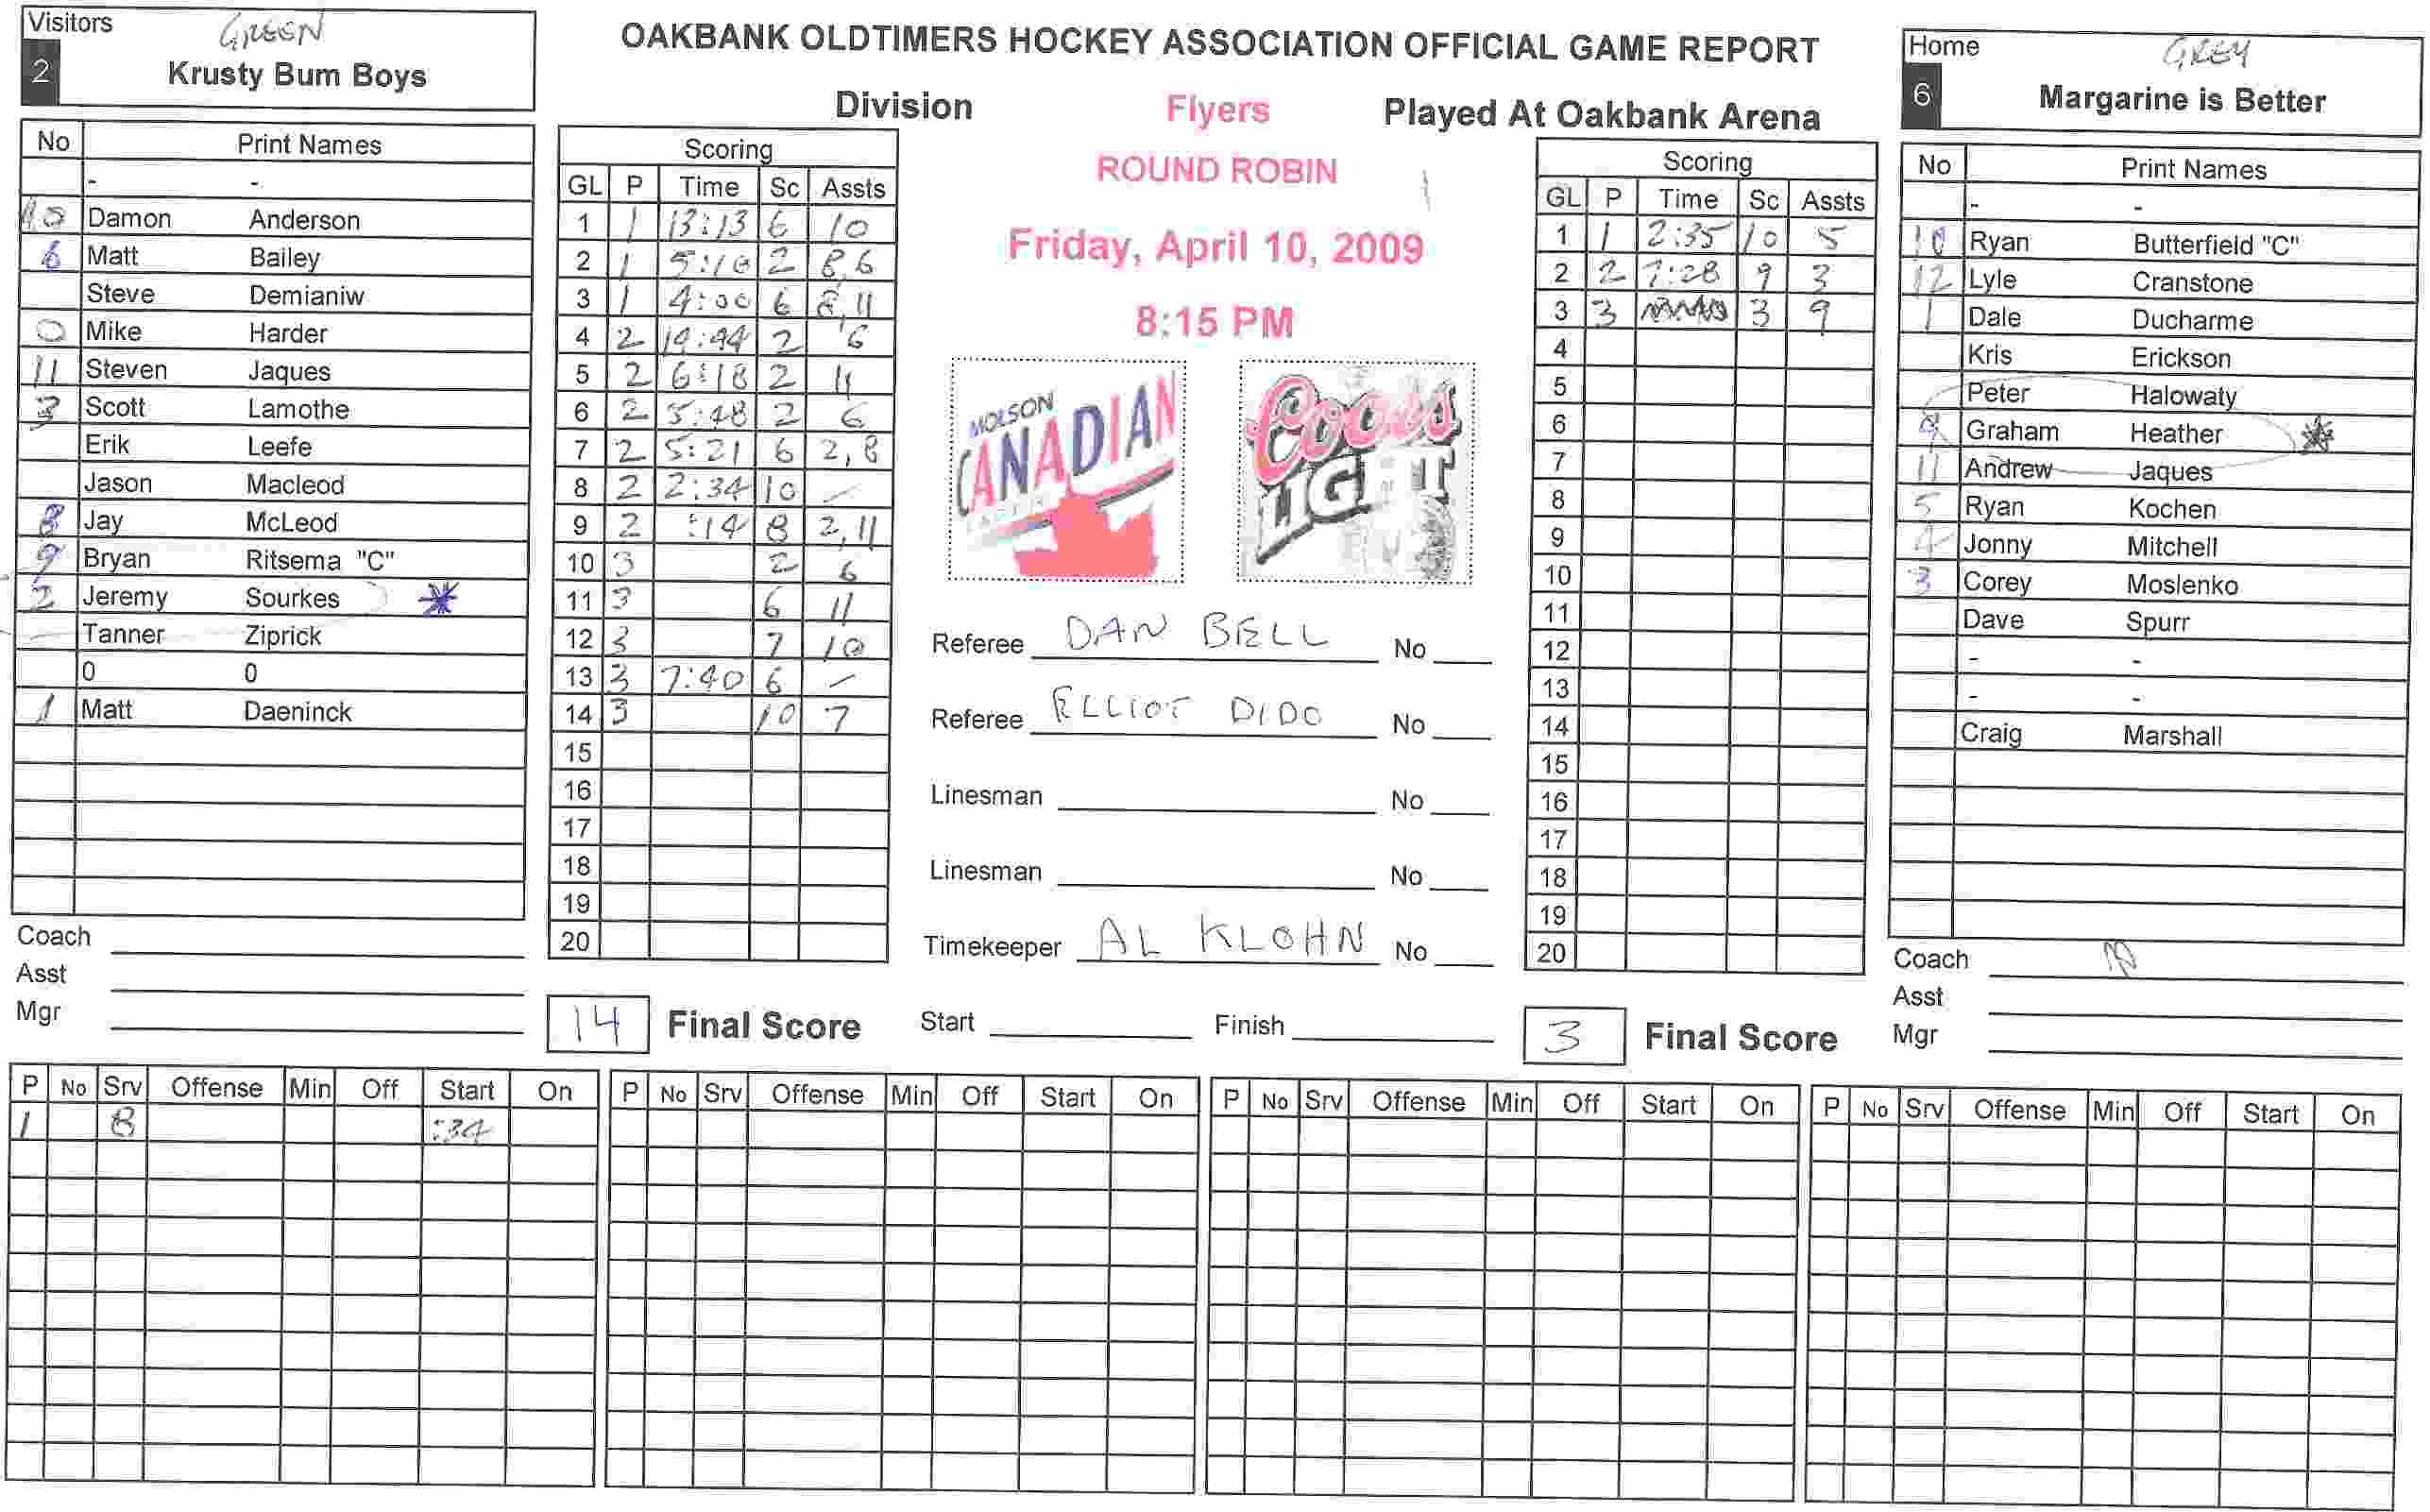 Visitors GREEN
2 Krusty Bum Boys
OAKBANK OLDTIMERS HOCKEY ASSOCIATION OFFICIAL GAME REPORT
Division Flyers Played At Oakbank Arena
ROUND ROBIN
Friday, April 10, 2009
8:15 PM
Home GREY
6 Margarine is Better
No Print Names
- -
10 Damon Anderson
6 Matt Bailey
Steve Demianiw
0 Mike Harder
11 Steven Jaques
3 Scott Lamothe
Erik Leefe
Jason Macleod
8 Jay McLeod
9 Bryan Ritsema "C"
2 Jeremy Sourkes *
Tanner Ziprick
0 0
1 Matt Daeninck
Coach
Asst
Mgr
Scoring
GL P Time Sc Assts
1 1 13:13 6 10
2 1 5:10 2 8,6
3 1 4:00 6 8,11
4 2 19:44 2 6
5 2 6:18 2 11
6 2 5:48 2 6
7 2 5:21 6 2,8
8 2 2:34 10 -
9 2 :14 8 2,11
10 3 2 6
11 3 6 11
12 3 7 10
13 3 7:40 6 -
14 3 10 7
15
16
17
18
19
20
14 Final Score
MOLSON
CANADIAN
Coors
LIGHT
Referee DAN BELL No
Referee ELLIOT DIDO No
Linesman No
Linesman No
Timekeeper AL KLOHN No
Start Finish
Scoring
GL P Time Sc Assts
1 1 2:35 10 5
2 2 7:28 9 3
3 3 3 9
4
5
6
7
8
9
10
11
12
13
14
15
16
17
18
19
20
3 Final Score
No Print Names
- -
10 Ryan Butterfield "C"
12 Lyle Cranstone
1 Dale Ducharme
Kris Erickson
Peter Halowaty
9 Graham Heather *
11 Andrew Jaques
5 Ryan Kochen
4 Jonny Mitchell
3 Corey Moslenko
Dave Spurr
- -
- -
Craig Marshall
Coach
Asst
Mgr
P No Srv Offense Min Off Start On
1 8 :34
P No Srv Offense Min Off Start On
P No Srv Offense Min Off Start On
P No Srv Offense Min Off Start On